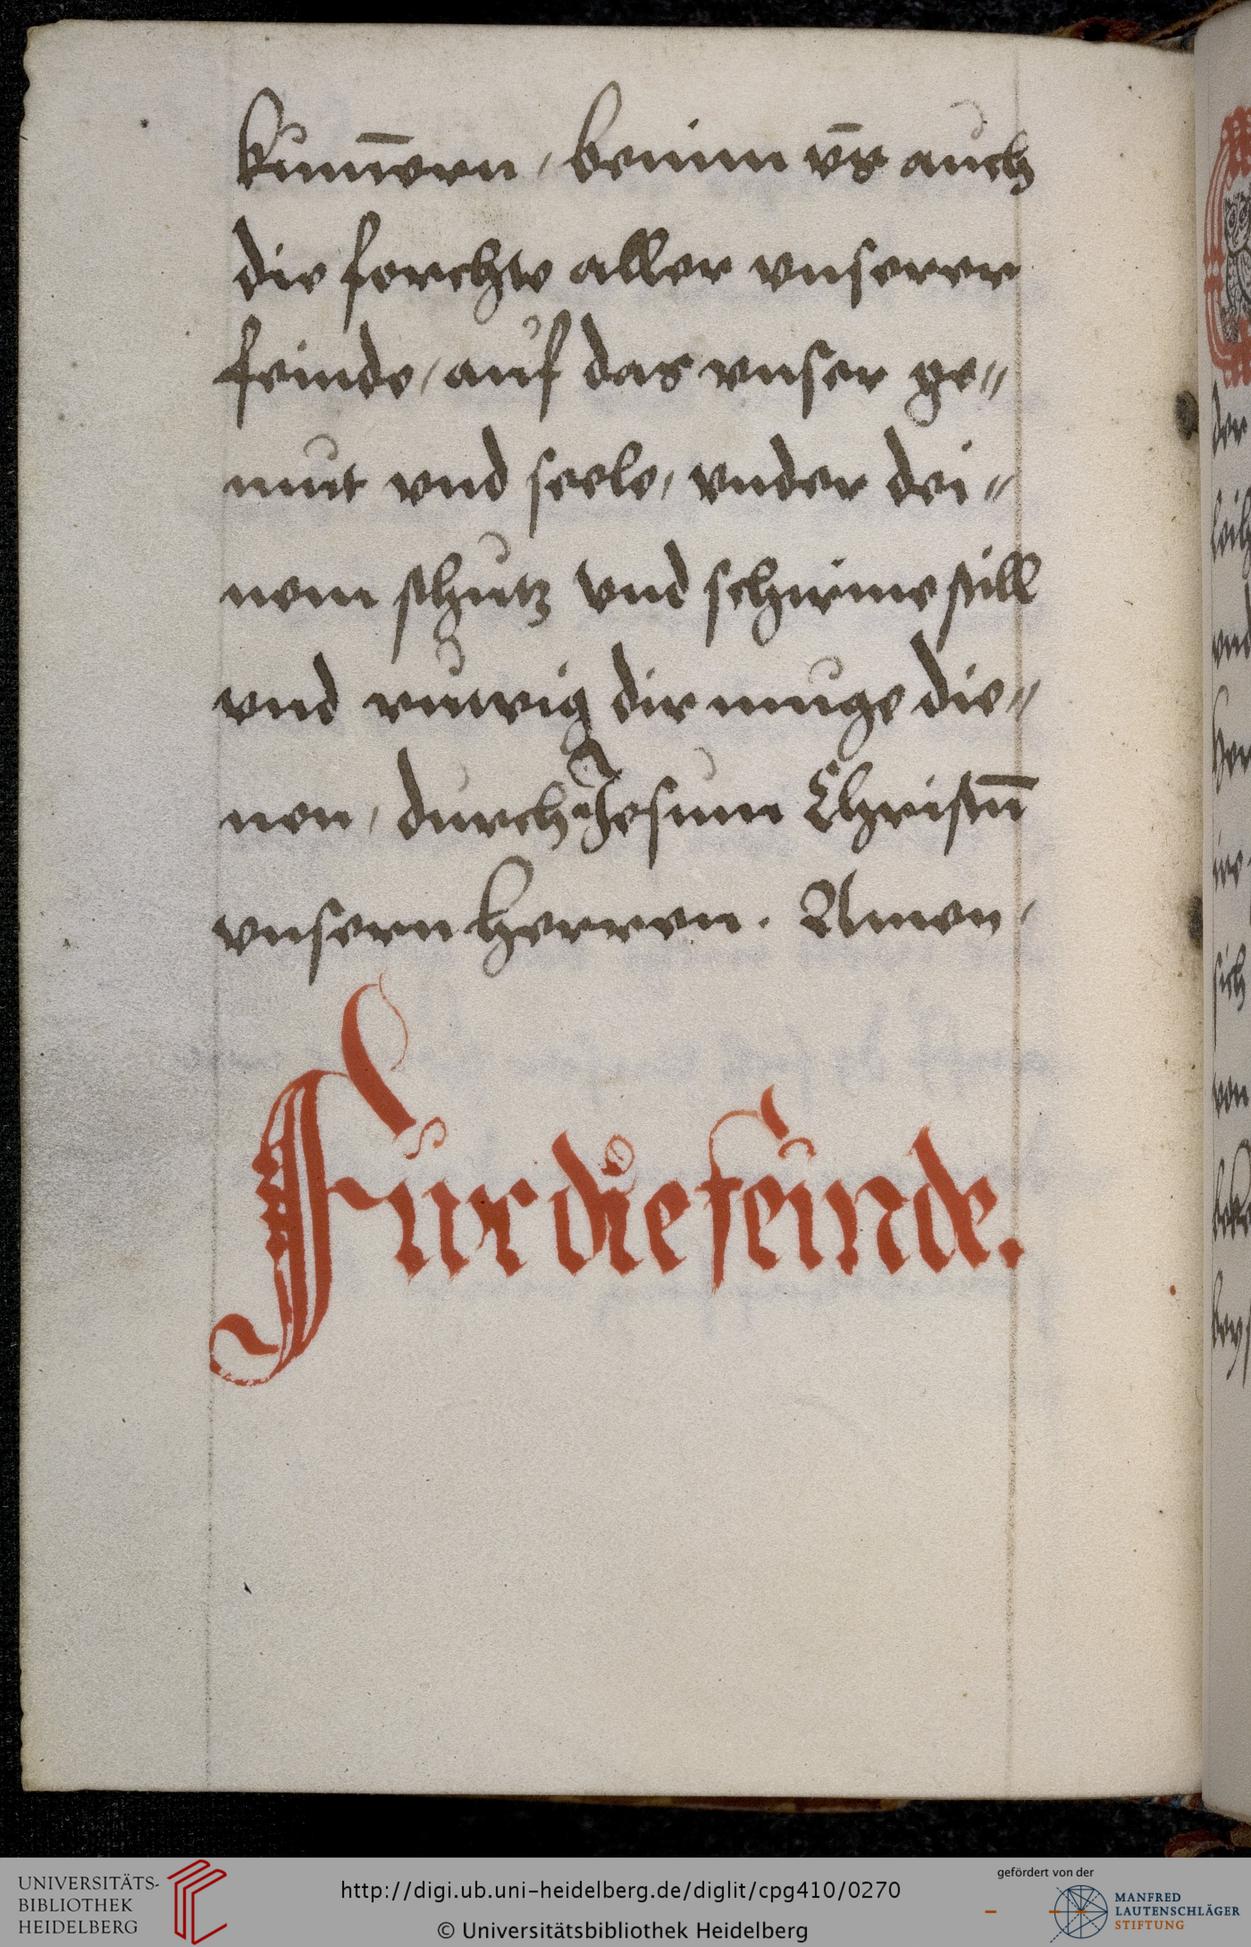 kum̄ern, benim vn̄s auch
die forchte aller vnserer
feinde, auf das vnser ge„
mut vnd seele, vnder dei„
nem schutz vnd schirme still
vnd ruwig dir muge die„
nen, durch Jesum Christū
vnsern herren. Amen,
Fur die feinde.
der
vnd
sich
von
UNIVERSITÄTS-
BIBLIOTHEK
HEIDELBERG
http://digi.ub.uni-heidelberg.de/diglit/cpg410/0270
© Universitätsbibliothek Heidelberg
gefördert von der
MANFRED
LAUTENSCHLÄGER
STIFTUNG